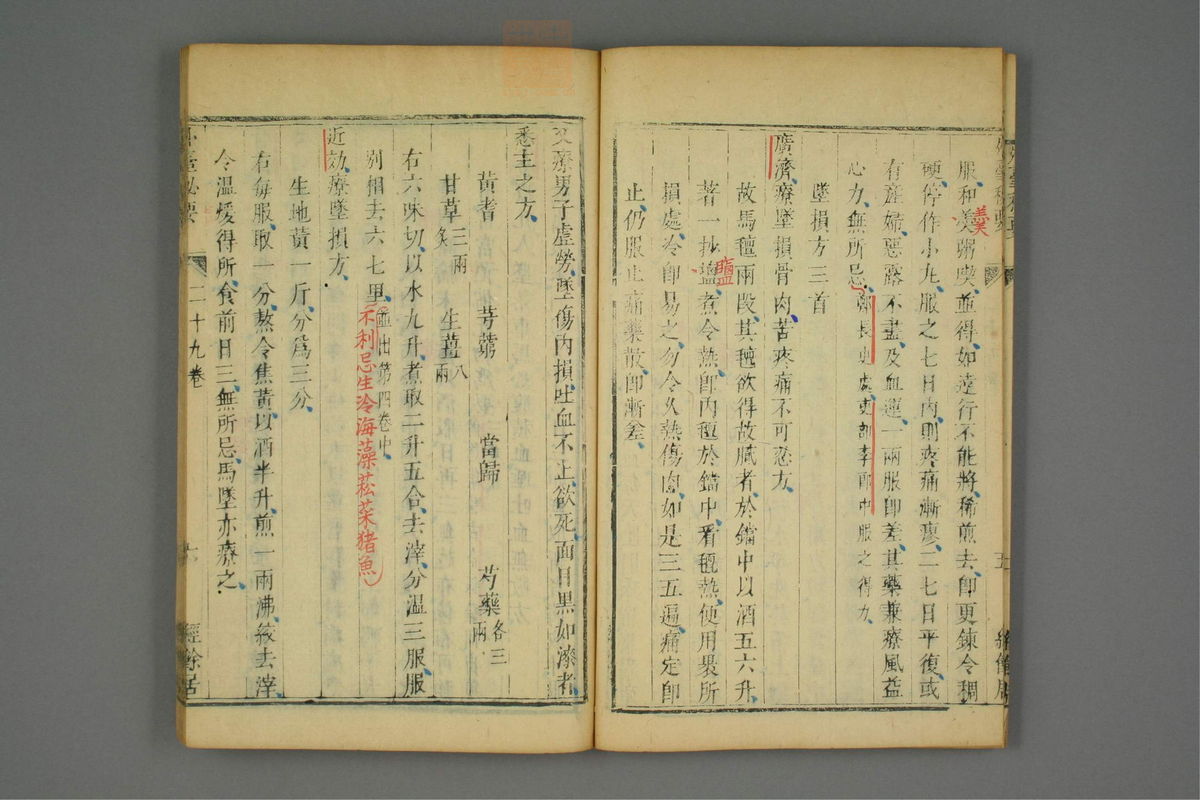 服和羹粥喫並得如遠行不能將稀煎去即更鍊令稠
羹
硬停作小丸服之七日內則疼痛漸瘳二七日平復或
有產婦惡露不盡及血運一兩服即差其藥兼療風益
心力無所忌鄭長史處吏部李郎中服之得力
墜損方三首
廣濟療墜損骨肉苦疼痛不可忍方
故馬氊兩段其氊欲得故膩者於鐺中以酒五六升
著一抄鹽煮令熱即內氊於鐺中看氊熱使用裹所
鹽
損處冷即易之勿令久熱傷肉如是三五遍痛定即
止仍服止痛藥散即漸差
五
又療男子虛勞墜傷內損吐血不止欲死面目黑如漆者
悉主之方
黃耆 芎藭 當歸 芍藥各三兩
甘草炙三兩 生薑八兩
右六味切以水九升煮取二升五合去滓分溫三服服
別相去六七里並出第四卷中
不利忌生冷海藻菘菜猪魚
近効療墜損方
生地黃一斤分爲三分
右每服取一分熬令焦黃以酒半升煎一兩沸絞去滓
令溫煖得所食前日三無所忌馬墜亦療之
外臺秘要 二十九卷 六 經餘居